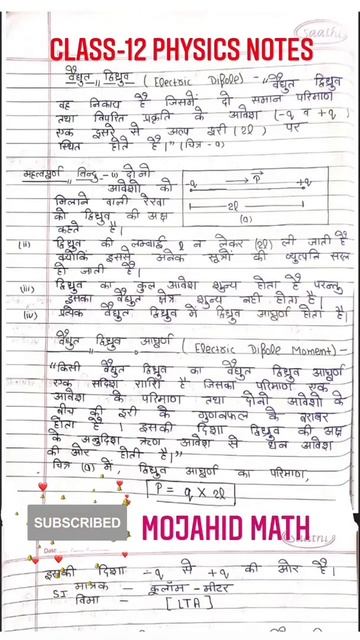 saathi
CLASS-12 PHYSICS NOTES
वैद्युत द्विध्रुव (Electric Dipole) - "वैद्युत द्विध्रुव
वह निकाय है जिसमें दो समान परिमाण
तथा विपरित प्रकृति के आवेश (-q व +q)
एक दूसरे से अल्प दूरी (2l) पर
स्थित होते है।" (चित्र - a)
महत्वपूर्ण बिन्दु - (i) दोनो
आवेशो को
मिलाने वाली रेखा
को द्विध्रुव की अक्ष
कहते है।
-q P +q
2l
(a)
(ii) द्विध्रुव की लम्बाई l न लेकर (2l) ली जाती है
क्योंकि इससे अनेक सूत्रों की व्युत्पत्ति सरल
हो जाती है।
(iii) द्विध्रुव का कुल आवेश शून्य होता है परन्तु
इसका वैद्युत क्षेत्र शून्य नही होता है।
(iv) प्रत्येक वैद्युत द्विध्रुव में द्विध्रुव आघूर्ण होता है।
वैद्युत द्विध्रुव आघूर्ण (Electric Dipole Moment) -
"किसी वैद्युत द्विध्रुव का वैद्युत द्विध्रुव आघूर्ण
एक सदिश राशि है जिसका परिमाण एक
आवेश के परिमाण तथा दोनो आवेशो के
बीच की दूरी के गुणनफल के बराबर
होता है। इसकी दिशा द्विध्रुव की अक्ष
के अनुदिश ऋण आवेश से धन आवेश
की ओर होती है।"
चित्र (a) में, द्विध्रुव आघूर्ण का परिमाण,
P = q × 2l
SUBSCRIBED
MOJAHID MATH
Date
saathi
इसकी दिशा -q से +q की ओर है।
SI मात्रक - कूलॉम - मीटर
विमा = [LTA]